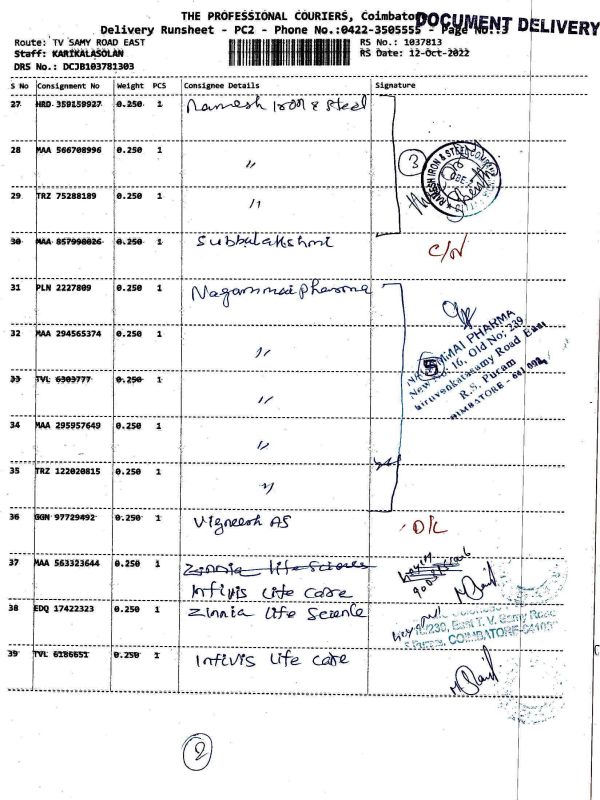 THE PROFESSIONAL COURIERS, Coimbatore
DOCUMENT DELIVERY
Delivery Runsheet - PC2 - Phone No.:0422-3505555 - Page No.:3
Route: TV SAMY ROAD EAST RS No.: 1037813
Staff: KARIKALASOLAN RS Date: 12-Oct-2022
DRS No.: DCJB103781303
S No Consignment No Weight PCS Consignee Details Signature
27 HRD 359159927 0.250 1 Ramesh Iron & Steel
28 MAA 566708996 0.250 1 〃
3
RAMESH IRON & STEEL COMPANY
29 TRZ 75288189 0.250 1 〃
30 MAA 857998026 0.250 1 Subbulakshmi C/N
31 PLN 2227809 0.250 1 Nagammai Pharma
32 MAA 294565374 0.250 1 〃
NAGAMMAI PHARMA
New No: 16, Old No: 239
Thiruvenkatasamy Road East
R.S. Puram
COIMBATORE - 641 002
5
33 TVL 6303777 0.250 1 〃
34 MAA 295957649 0.250 1 〃
35 TRZ 122020815 0.250 1 〃
36 GGN 97729492 0.250 1 Vigneesh AS D/L
37 MAA 563323644 0.250 1 Zinnia Life Sciences
Infivis Life Care
38 EDQ 17422323 0.250 1 Zinnia Life Science
/230, East T. V. Samy Road
S Puram, COIMBATORE-
39 TVL 6186651 0.250 1 Infivis Life Care
2